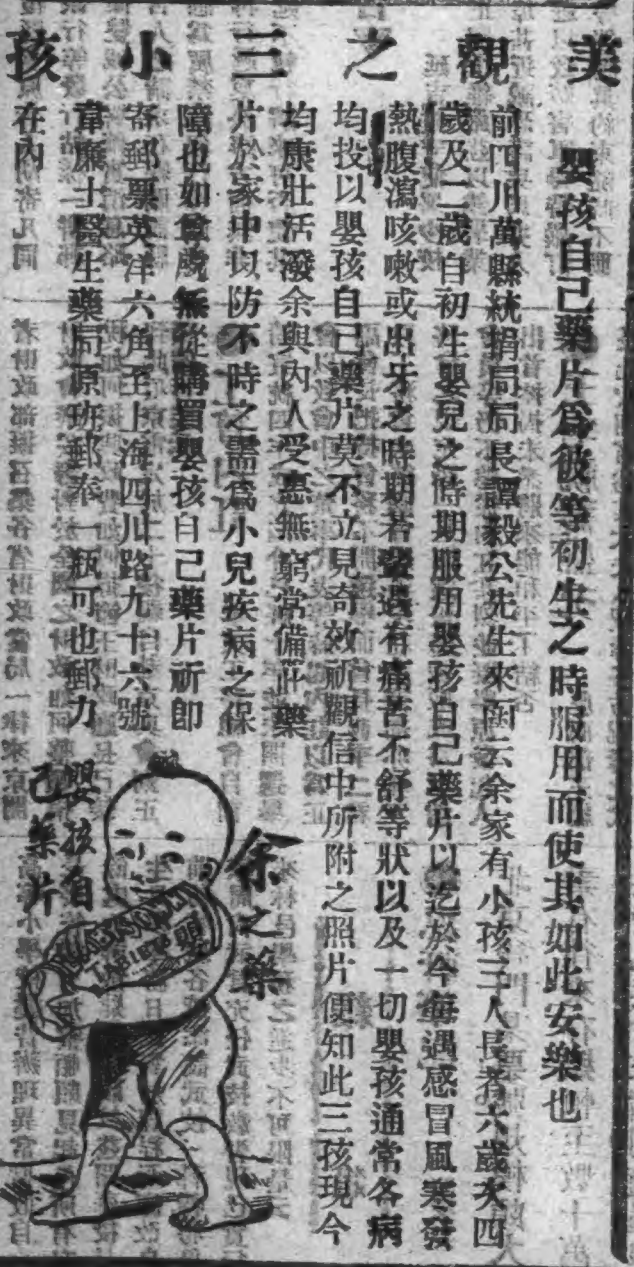 美觀之三小孩
嬰孩自己藥片爲彼等初生之時服用而使其如此安樂也
前四川萬縣統捐局局長譚毅公先生來函云余家有小孩三人長者六歲次四
歲及二歲自初生嬰兒之時期服用嬰孩自己藥片以迄於今每遇感冒風寒發
熱腹瀉咳嗽或出牙之時期若變遇有痛苦不舒等狀以及一切嬰孩通常各病
均投以嬰孩自己藥片莫不立見奇效祈觀信中所附之照片便知此三孩現今
均康壯活潑余與內人受惠無窮常備此藥
片於家中以防不時之需爲小兒疾病之保
障也如尊處無從購買嬰孩自己藥片祈即
寄郵票英洋六角至上海四川路九十六號
韋廉士醫生藥局原班郵奉一瓶可也郵力
在內
余之藥
嬰孩自
己藥片
BABY'S OWN
TABLETS